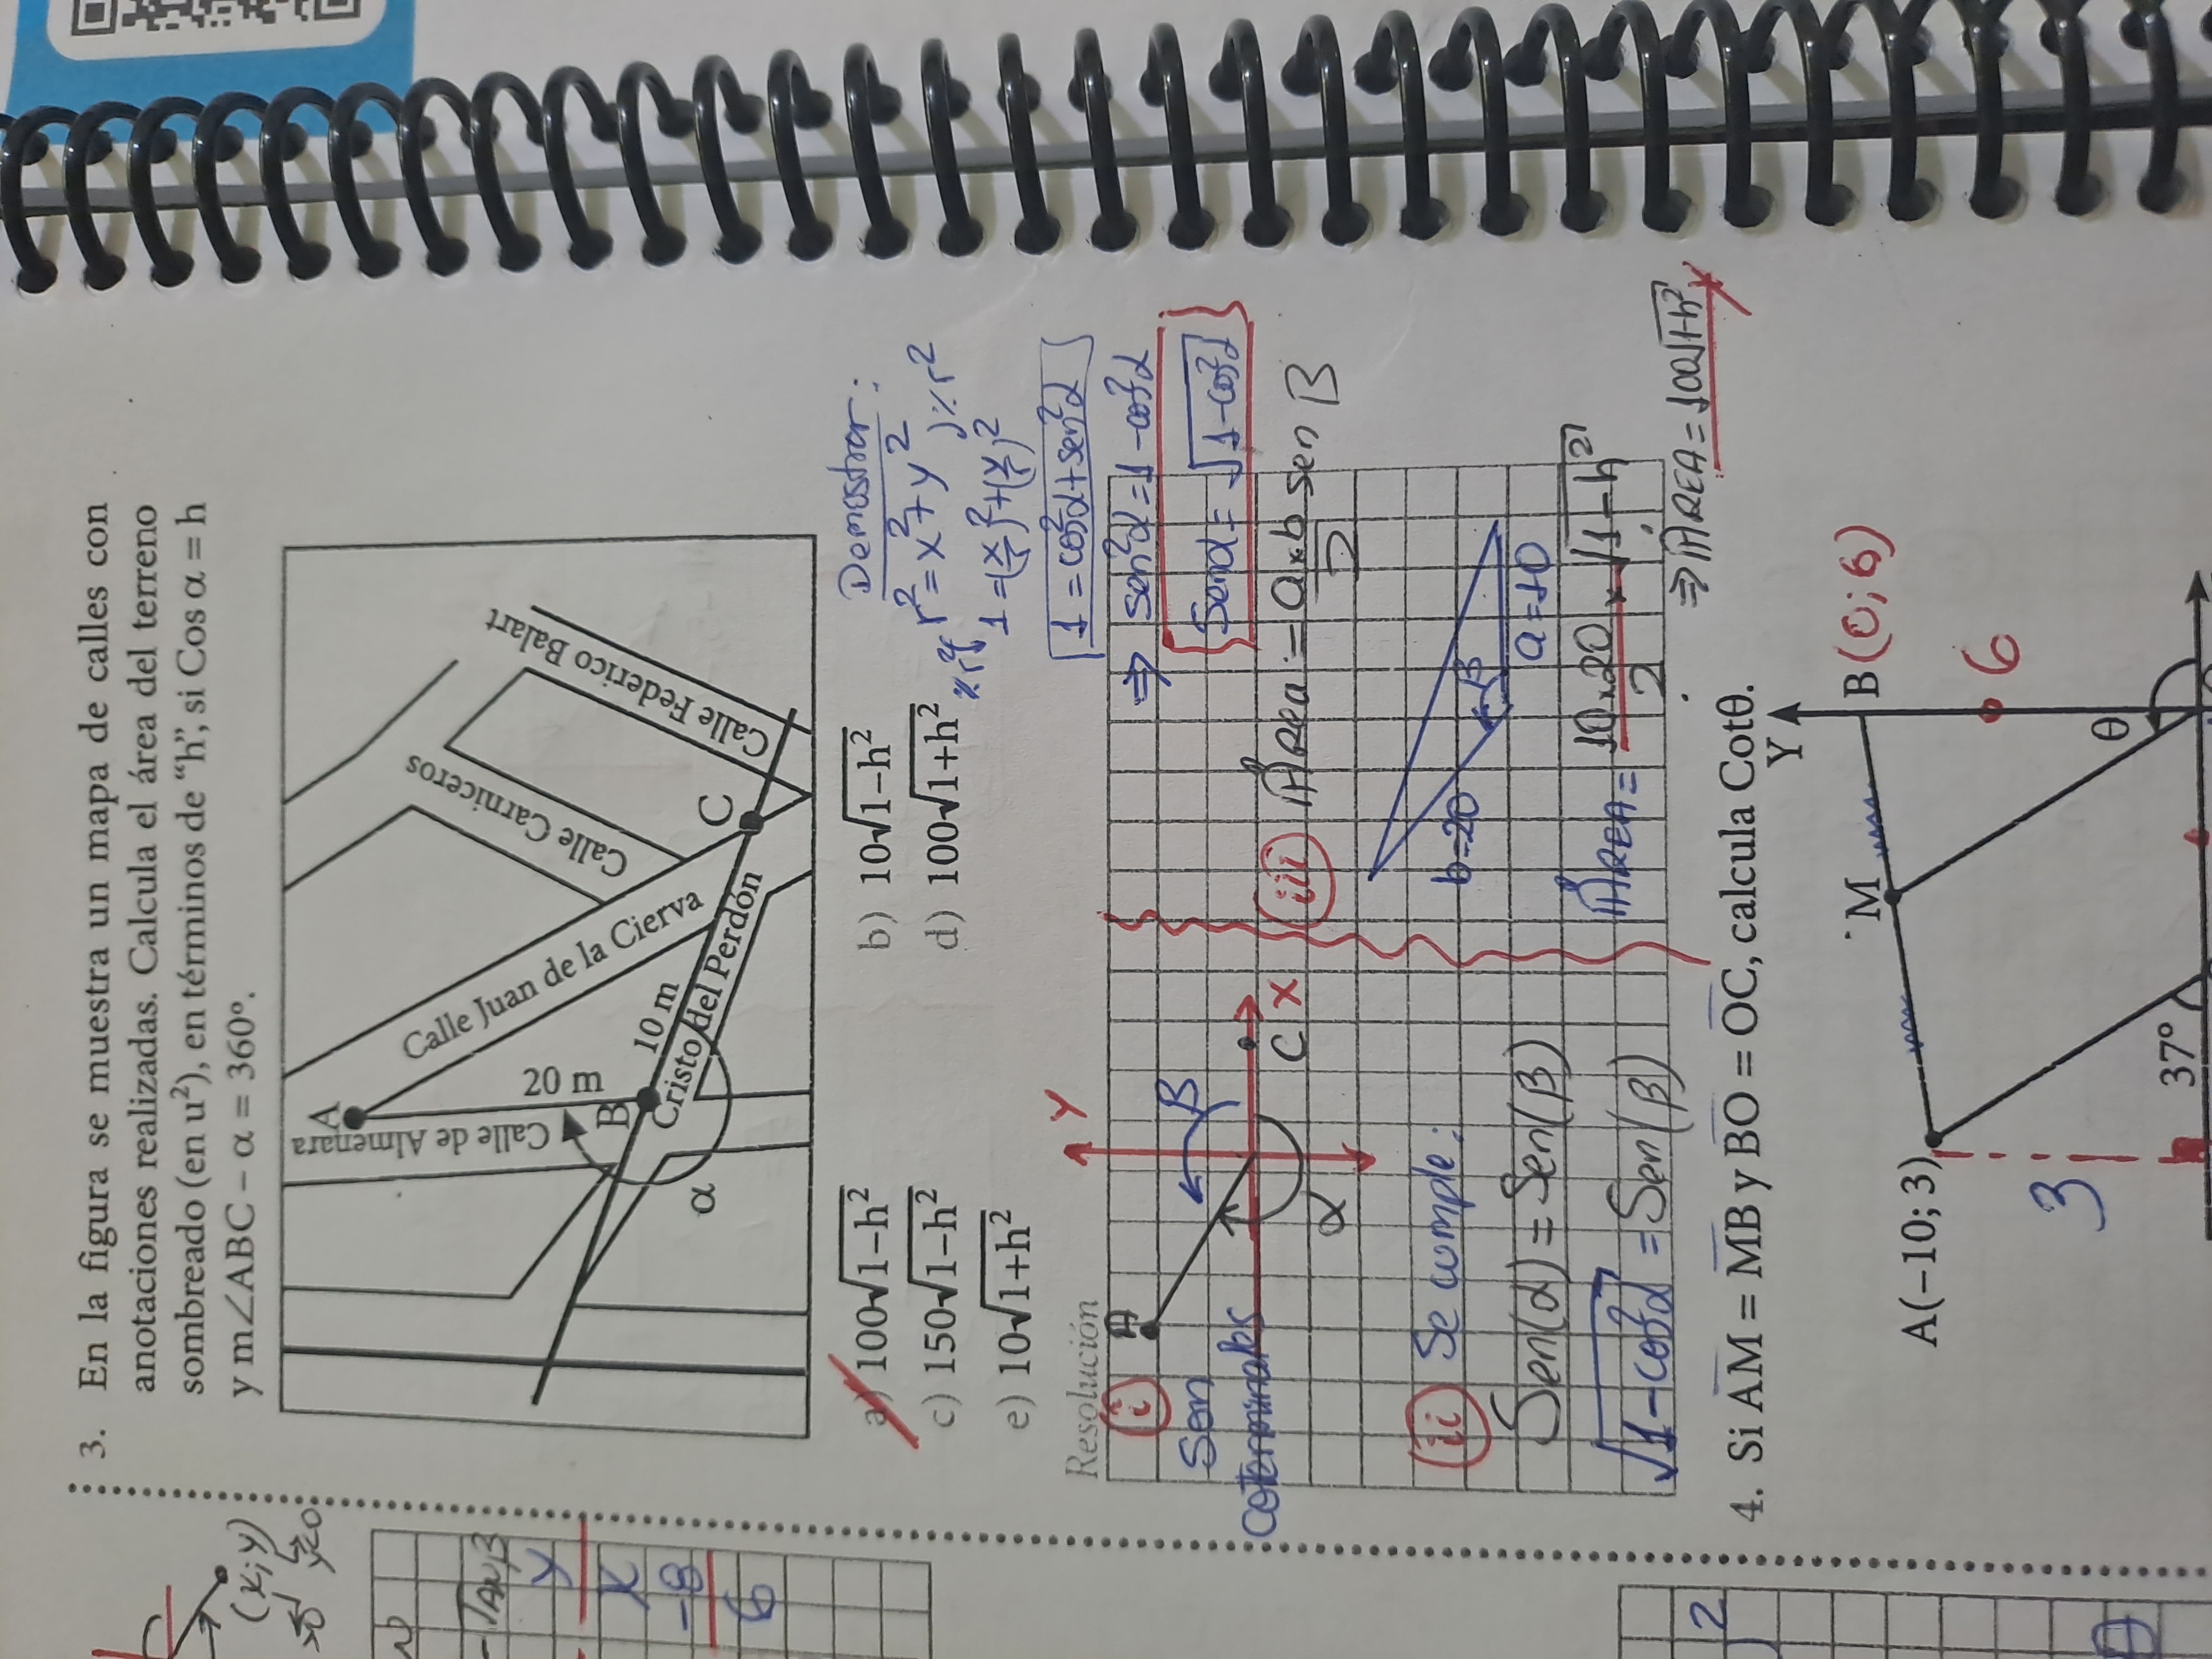 3. En la figura se muestra un mapa de calles con
anotaciones realizadas. Calcula el área del terreno
sombreado (en u²), en términos de “h”, si Cos α = h
y m∠ABC – α = 360º.
(x;y)
y<0
-Tan β
y
x
-8
6
A
Calle de Almenara
20 m
B
10 m
Calle Juan de la Cierva
Calle Carniceros
Calle Federico Balart
Cristo del Perdón
C
α
a) 100√1–h²
b) 10√1–h²
c) 150√1–h²
d) 100√1+h²
e) 10√1+h²
Demostrar:
r² = x² + y²
) % r²
1 = (x/r)² + (y/r)²
1 = cos²α + sen²α
⇒ sen²α = 1 - cos²α
Senα = √1-cos²α
Resolución
i
A
Y
Son
coterminales
β
C X
α
ii Se cumple:
Sen(α) = Sen(β)
√1-cos²α = Sen(β)
iii Área = a×b/2 sen B
b=20
β
a=10
ÁREA = 10×20/2 × √1-h²
⇒ ÁREA = 100√1-h²
2
θ
4. Si AM = MB y BO = OC, calcula Cotθ.
Y
M
B (0;6)
A(–10; 3)
6
3
θ
37°